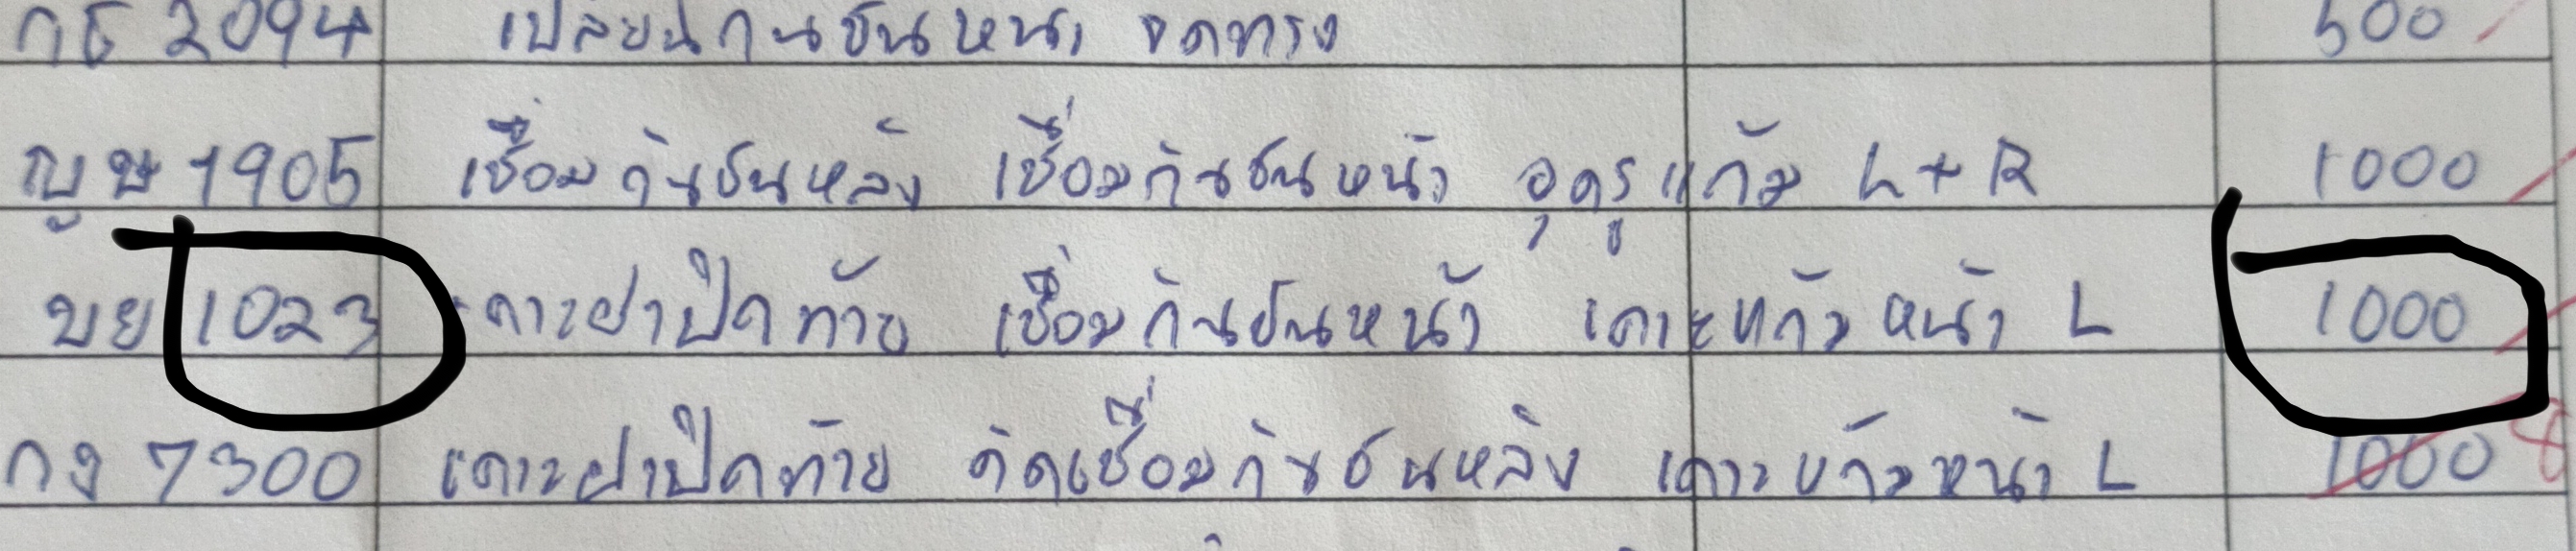 กธ 2094 เปลี่ยนกันชนหน้า จัดทรง 500
ญษ 1905 เชื่อมกันชนหลัง เชื่อมกันชนหน้า อุดรูแก้ม L+R 1000
บย 1023 เคาะฝาปิดท้าย เชื่อมกันชนหน้า เคาะแก้มหน้า L 1000
กง 7300 เคาะฝาปิดท้าย ดัดเชื่อมกันชนหลัง เคาะแก้มหน้า L 1000 8